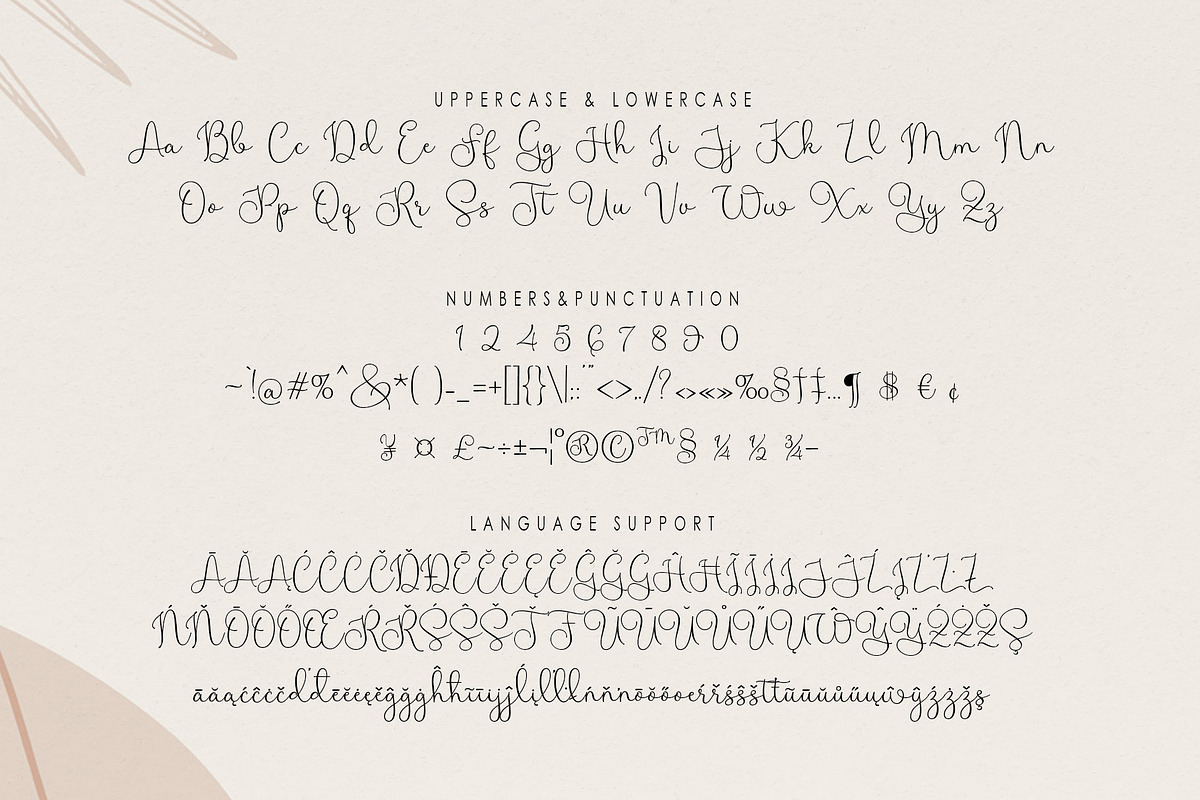 UPPERCASE & LOWERCASE
Aa Bb Cc Dd Ee Ff Gg Hh Ii Jj Kk Ll Mm Nn
Oo Pp Qq Rr Ss Tt Uu Vv Ww Xx Yy Zz
NUMBERS&PUNCTUATION
1 2 4 5 6 7 8 9 0
~`!@#%^&*( )-_=+[]{}\|:;'"<>,./?‹›«»‰§†‡...¶ $ € ¢
¥ ¤ £~÷±¬¦°®©™§ ¼ ½ ¾–
LANGUAGE SUPPORT
ĀĂĄĆĈĊČĎĐĒĔĖĘĚĜĞĠĤĦĨĪĮĮJĴĹĻĽĿŁ
ŃŇŌŎŐŒŔŘŚŜŠŤŦŨŪŬŮŰŲŴŶŸŹŻŽŞ
āăąćĉċčďđēĕėęěĝğġĥħĩīıijĵĺļľŀłńňŋōŏőœŕřśŝšťŧũūŭůűųŵŷźżžş